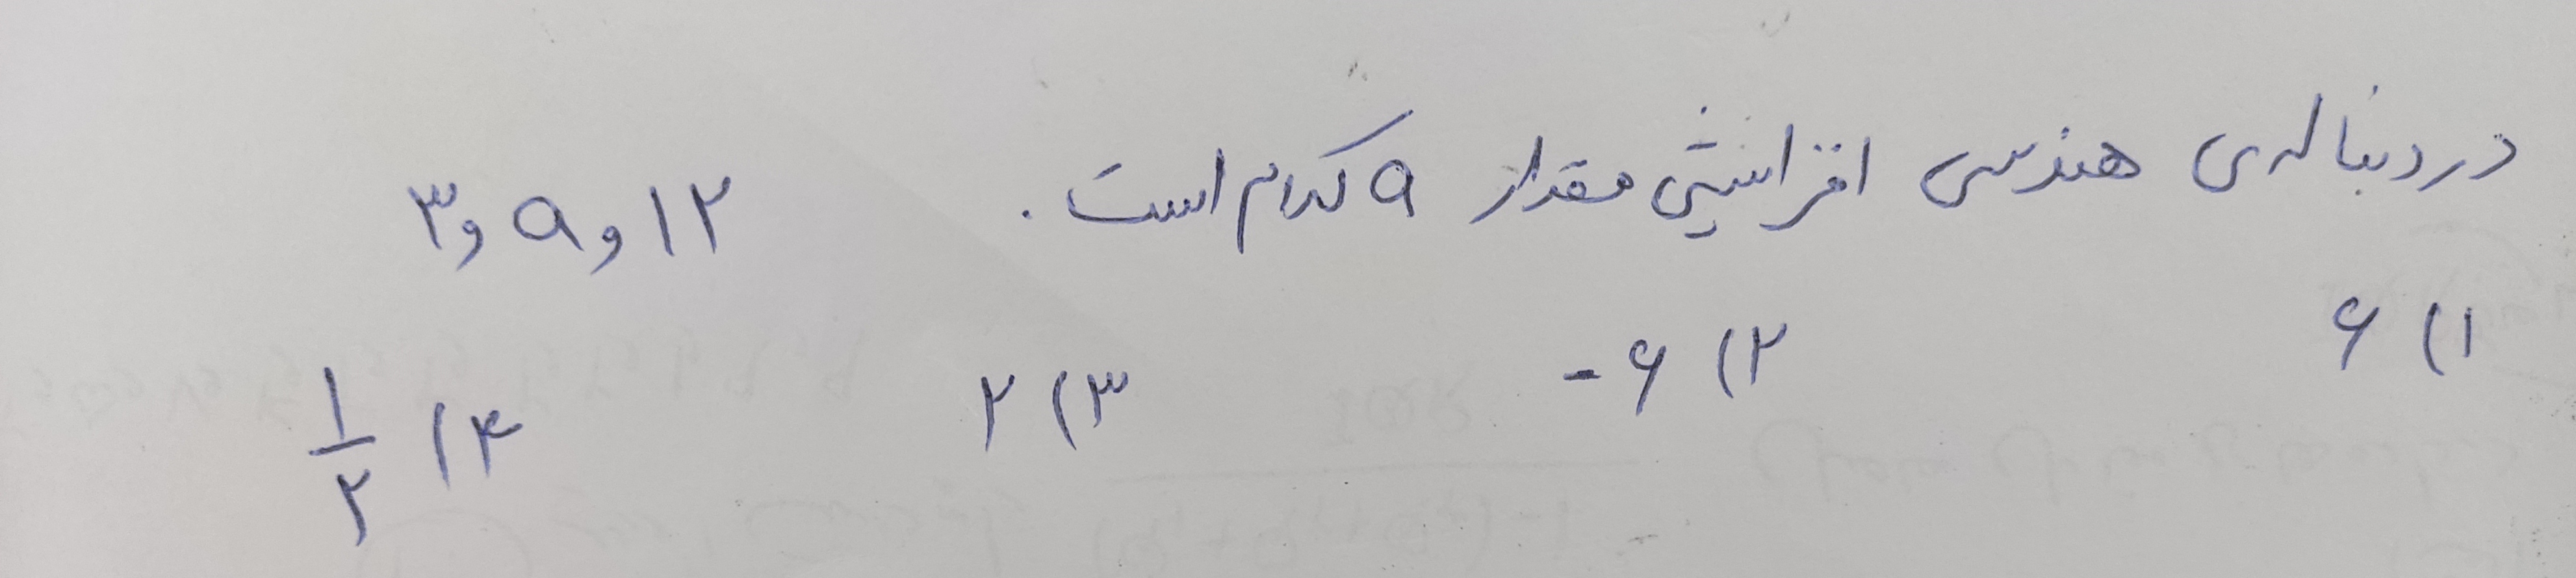 در دنباله‌ی هندسی افزایشی مقدار a کدام است. ۳ و a و ۱۲
۱) ۶ ۲) ۶- ۳) ۲ ۴) ۱/۲